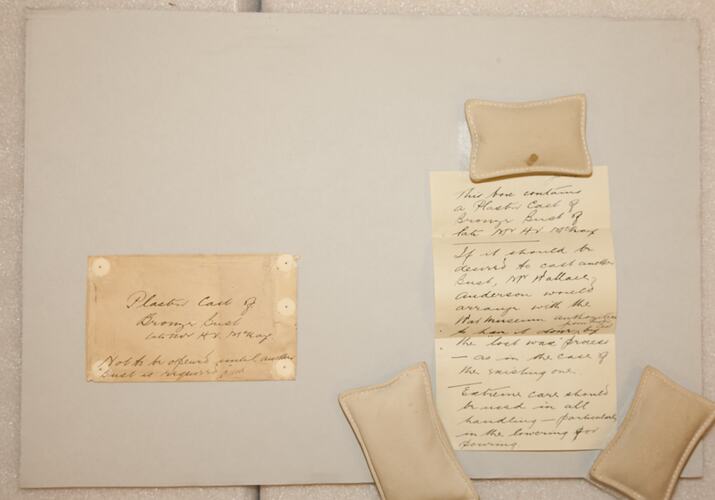 Plaster Cast of
Bronze Bust
late Mr H.V. McKay
Not to be opened until another
Bust is required
This box contains
a Plaster Cast of
Bronze Bust of
late Mr H.V. McKay
If it should be
desired to cast another
Bust, Mr Wallace
Anderson would
arrange with the
War Museum authorities
to have it done by
the lost wax process
- as in the case of
the existing one.
Extreme care should
be used in all
handling - particularly
in the lowering for
pouring